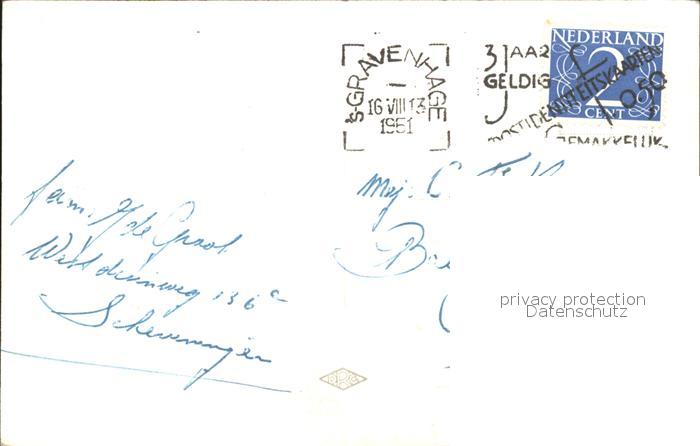 's-GRAVENHAGE
16 VIII 13
1951
3 JAAR
GELDIG
POSTIDENTITEITSKAARTEN
f 0.50
GEMAKKELIJK
NEDERLAND
2
CENT
fam. de Graaf
Westduinweg 136 a
Scheveningen
Mej. C.
privacy protection
Datenschutz